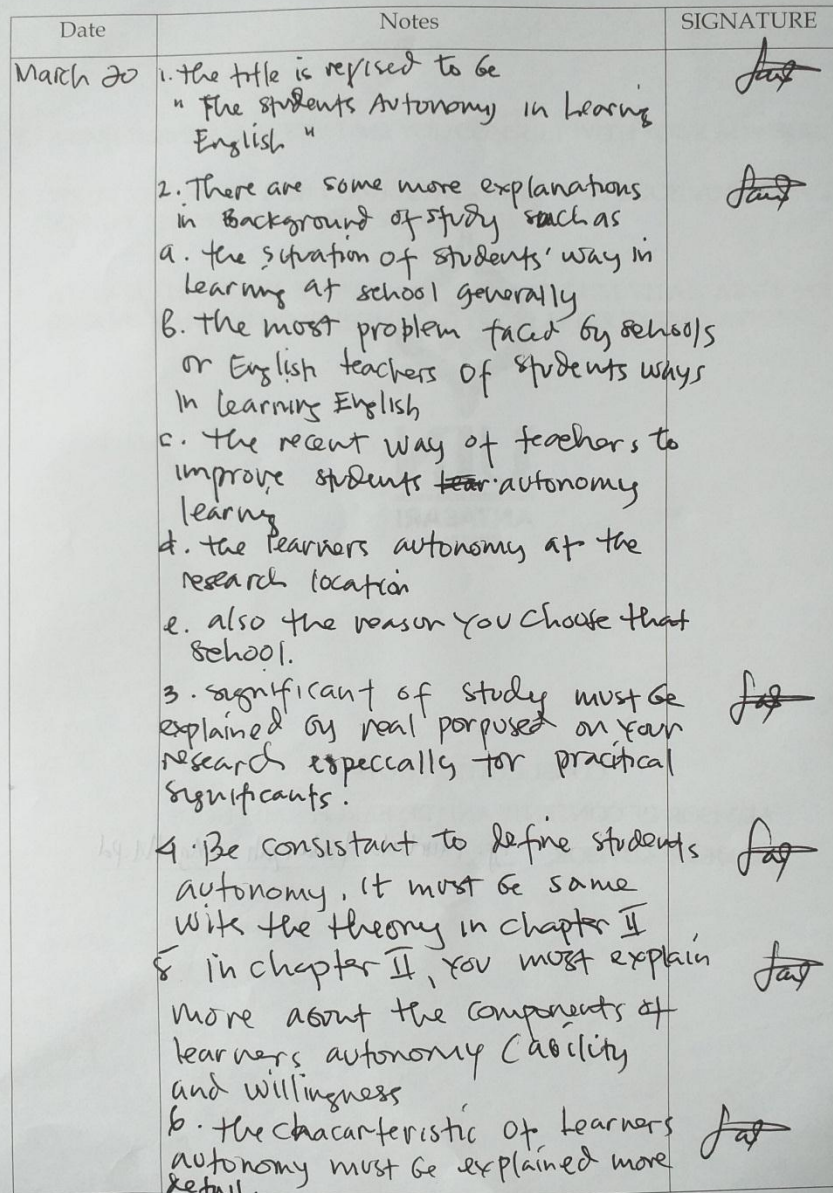 Date Notes SIGNATURE
March 20 1. the title is revised to be
" The students Autonomy in Learning
English "
2. There are some more explanations
in Background of study such as
a. the situation of students' way in
Learning at school generally
b. the most problem faced by schools
or English teachers of students ways
in learning English
c. the recent way of teachers to
improve students autonomy
learning
d. the learners autonomy at the
research location
e. also the reason you choose that
school.
3. significant of study must be
explained by real porpused on your
research especcally for practical
significants.
4. Be consistant to define students
autonomy, it must be same
with the theory in chapter II
5 in chapter II, you must explain
more about the components of
learners autonomy (ability
and willingness
6. the chacarteristic of Learners
autonomy must be explained more
detail.